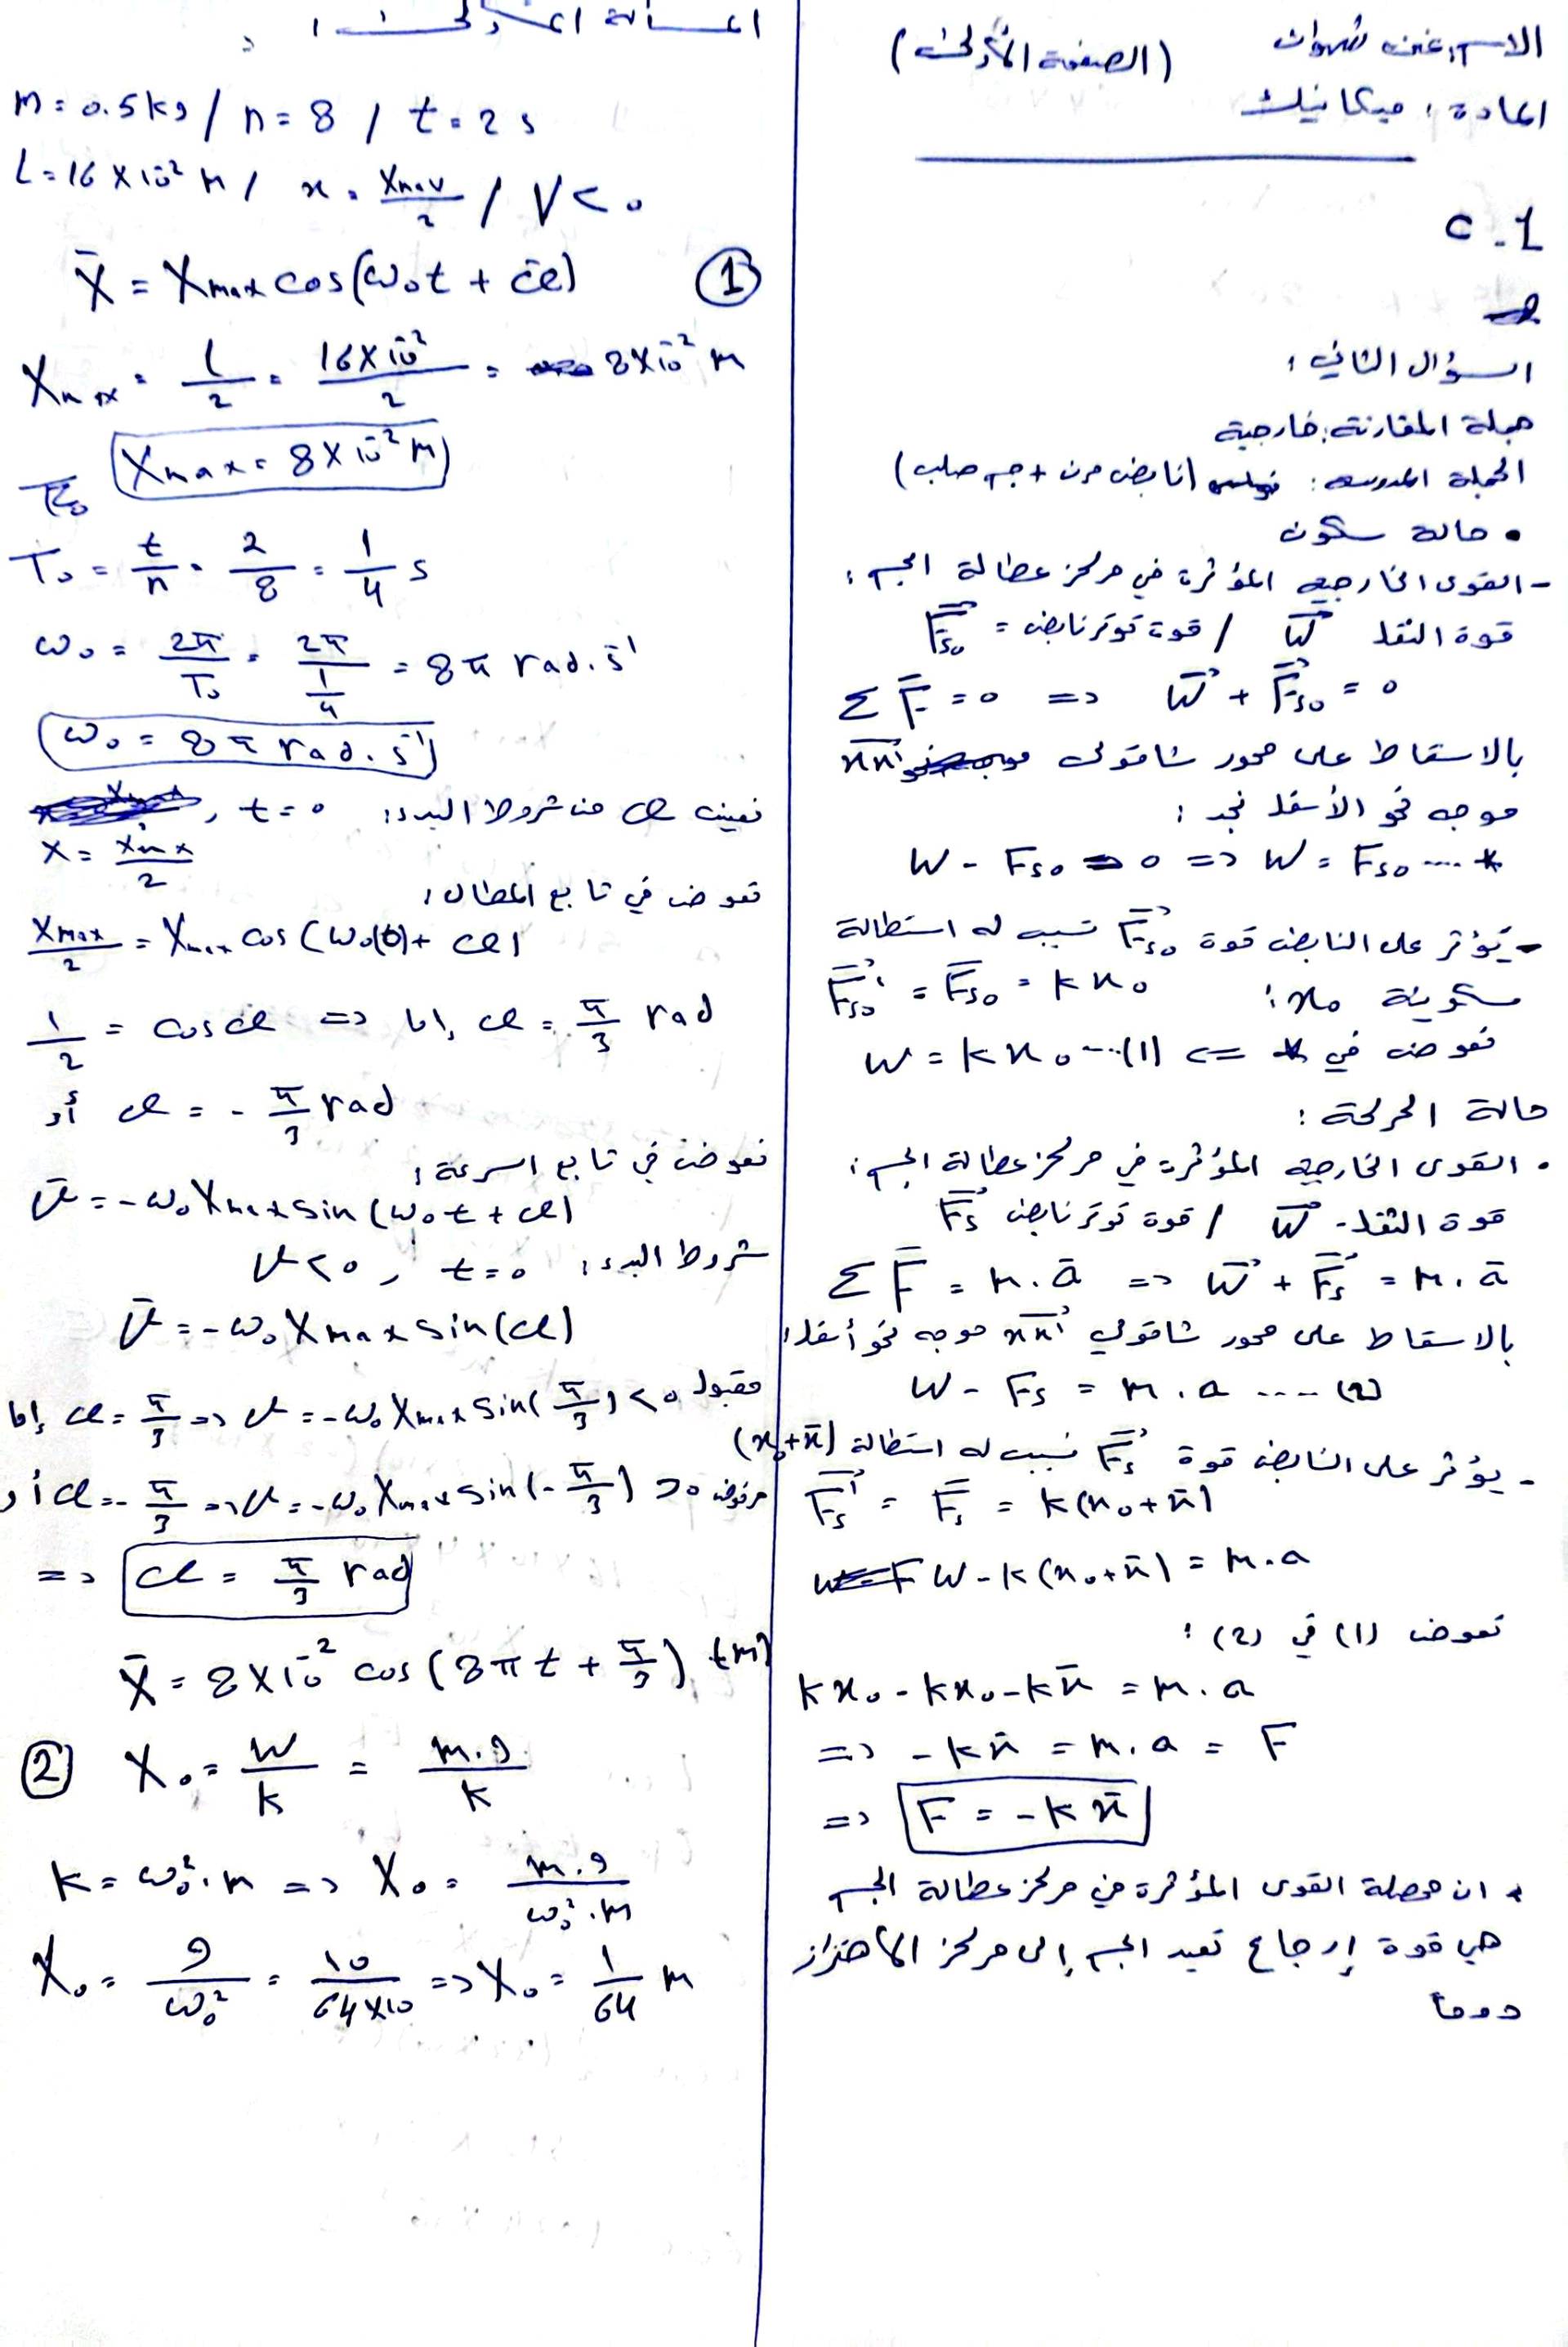 الاسم: غنى شهوان (الصفحة الأولى)
المادة: ميكانيك
1 - C
السؤال الثاني:
جملة المقارنة: خارجية
الجملة المدروسة: (نابض مرن + جسم صلب)
• حالة سكون
- القوى الخارجية المؤثرة في مركز عطالة الجسم:
قوة الثقل W⃗ / قوة توتر نابض = F⃗s₀
Σ F⃗ = 0 => W⃗ + F⃗s₀ = 0
بالاسقاط على محور شاقولي x̄x̄'
موجه نحو الأسفل نجد:
W - Fs₀ = 0 => W = Fs₀ .... *
- يؤثر على النابض قوة F⃗'s₀ تسبب له استطالة
سكونية x₀: F's₀ = Fs₀ = k x₀
نعوض في * <= W = k x₀ ...(1)
حالة الحركة:
• القوى الخارجية المؤثرة في مركز عطالة الجسم:
قوة الثقل - W⃗ / قوة توتر نابض F⃗s
Σ F⃗ = m.ā => W⃗ + F⃗s = m.ā
بالاسقاط على محور شاقولي x̄x̄' موجه نحو أسفل:
W - Fs = m.a .... (2)
- يؤثر على النابض قوة F⃗'s تسبب له استطالة (x₀+x̄)
F's = Fs = k(x₀+x̄)
W - k(x₀+x̄) = m.a
نعوض (1) في (2):
kx₀ - kx₀ - kx̄ = m.a
=> -kx̄ = m.a = F
=> F = -k x̄
* ان محصلة القوى المؤثرة في مركز عطالة الجسم
هي قوة إرجاع تعيد الجسم إلى مركز الاهتزاز
دوماً
المسألة الأولى:
m = 0.5 kg / n = 8 / t = 2 s
L = 16 × 10⁻² m / x = Xmax/2 / V < 0
x̄ = Xmax cos(ω₀t + φ̄) ①
Xmax = L/2 = 16×10⁻²/2 = 8×10⁻² m
Xmax = 8×10⁻² m
T₀ = t/n = 2/8 = 1/4 s
ω₀ = 2π/T₀ = 2π/(1/4) = 8π rad.s⁻¹
ω₀ = 8π rad.s⁻¹
نعين φ من شروط البدء: t=0 ,
x = Xmax/2
نعوض في تابع المطال:
Xmax/2 = Xmax cos(ω₀(0) + φ)
1/2 = cos φ => إما φ = π/3 rad
أو φ = - π/3 rad
نعوض في تابع السرعة:
v̄ = -ω₀ Xmax sin(ω₀t + φ)
شروط البدء: t=0 , v<0
v̄ = -ω₀ Xmax sin(φ)
إما φ = π/3 => v = -ω₀ Xmax sin(π/3) < 0 مقبول
أو φ = -π/3 => v = -ω₀ Xmax sin(-π/3) > 0 مرفوض
=> φ = π/3 rad
x̄ = 8×10⁻² cos(8πt + π/3) (m)
② X₀ = W/k = m.g/k
k = ω₀².m => X₀ = m.g/ω₀².m
X₀ = g/ω₀² = 10/64×10 => X₀ = 1/64 m